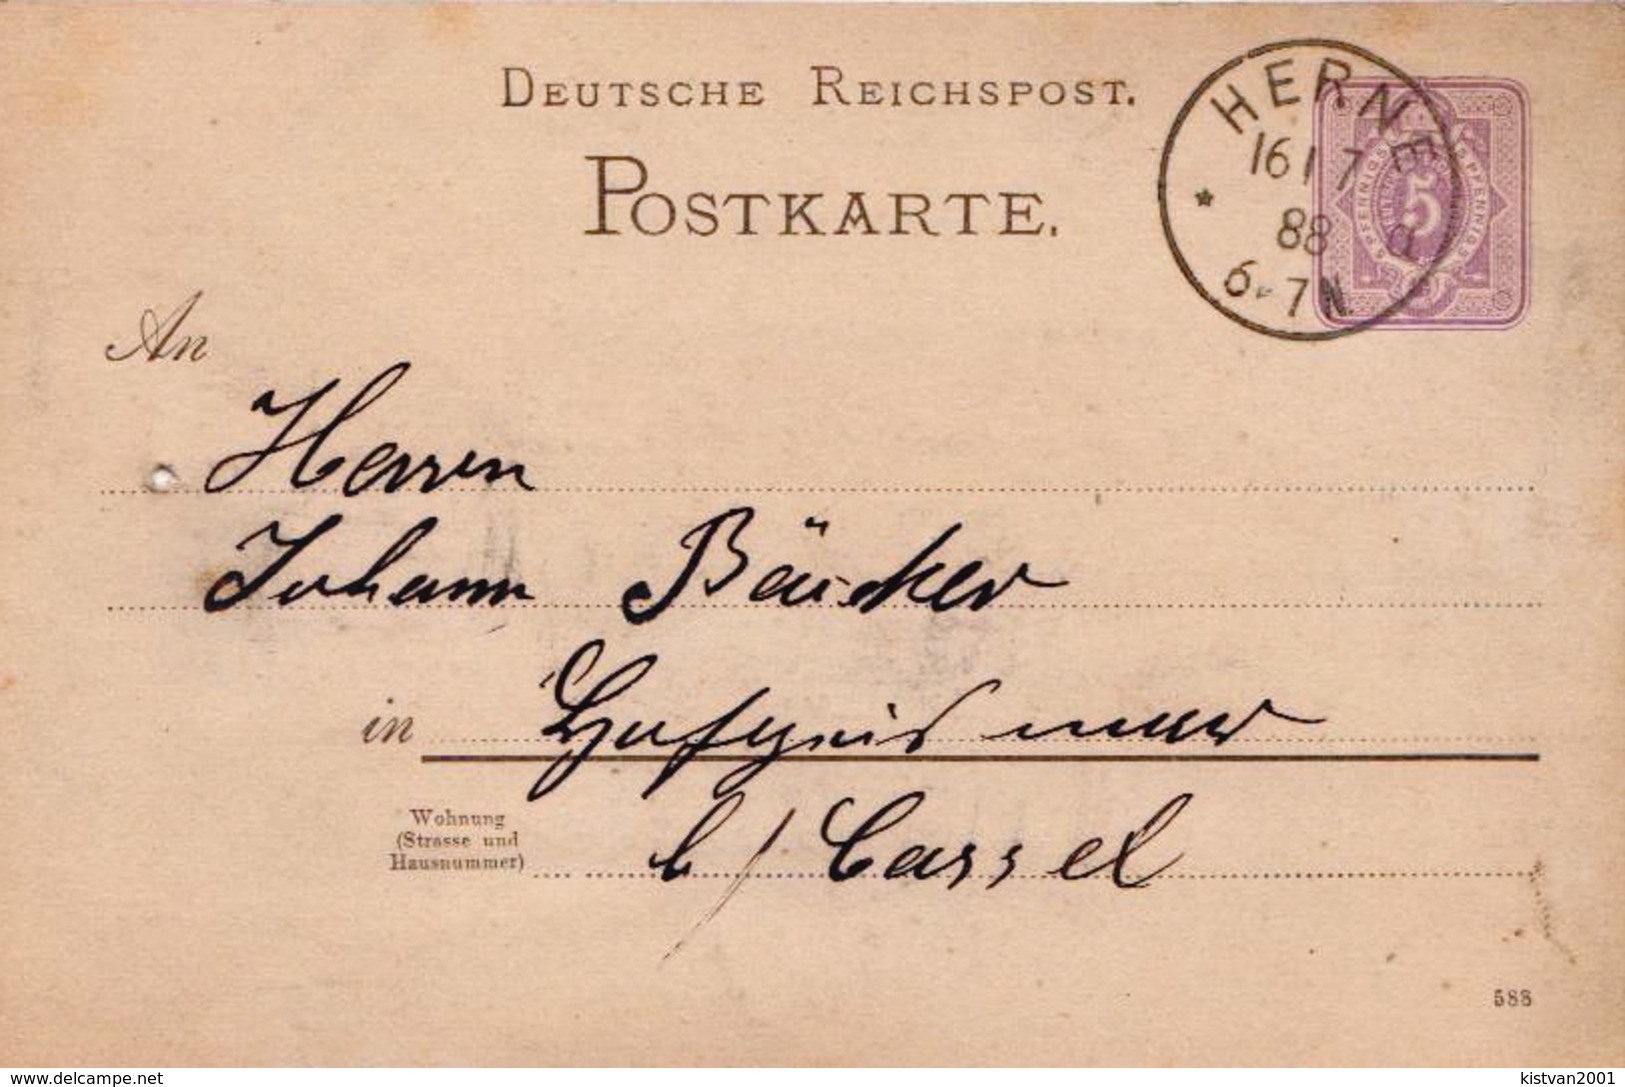 DEUTSCHE REICHSPOST.
POSTKARTE.
HERNE
16 1 7
88 a
6-7N.
5
PFENNIG
An
Herrn
Johann Bäcker
in Hofgeismar
b/ Cassel
Wohnung
(Strasse und
Hausnummer)
588
www.delcampe.net
kistvan2001